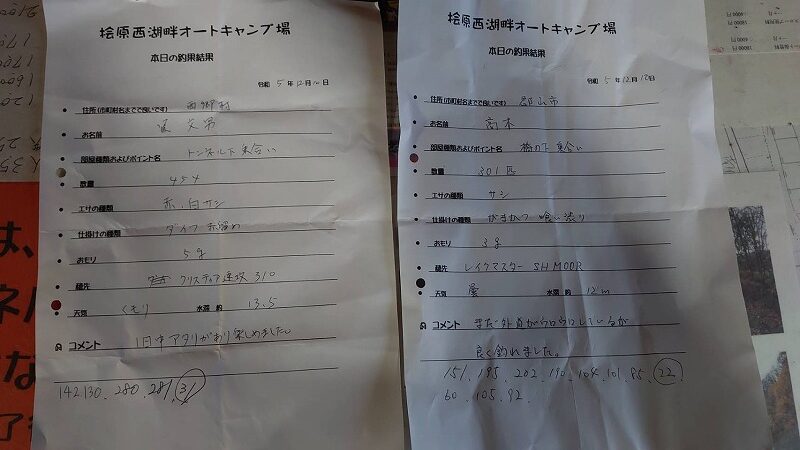 桧原西湖畔オートキャンプ場
本日の釣果結果
令和 5 年 12月 10 日
住所(市町村名までで良いです) 西郷村
お名前
部屋種類およびポイント名 トンネル下 乗合い
数量 454
エサの種類 赤、白サシ
仕掛けの種類 ダイワ 赤留め
おもり 5g
穂先 クリスティア 速攻 310
天気 くもり 水深 約 13.5
コメント 1日中アタリがあり楽しめました。
142.130、280、281、31
桧原西湖畔オートキャンプ場
本日の釣果結果
令和 5 年 12月 10日
住所(市町村名までで良いです) 郡山市
お名前 高木
部屋種類およびポイント名 橋の下 乗合い
数量 301匹
エサの種類 サシ
仕掛けの種類 がまかつ 喰い渋り
おもり 3g
穂先 レイクマスター SH M00R
天気 曇 水深 約 12m
コメント まだ外道がウロウロしているが
良く釣れました。
151、195、202、190、104、101、85、22
60、105、92、